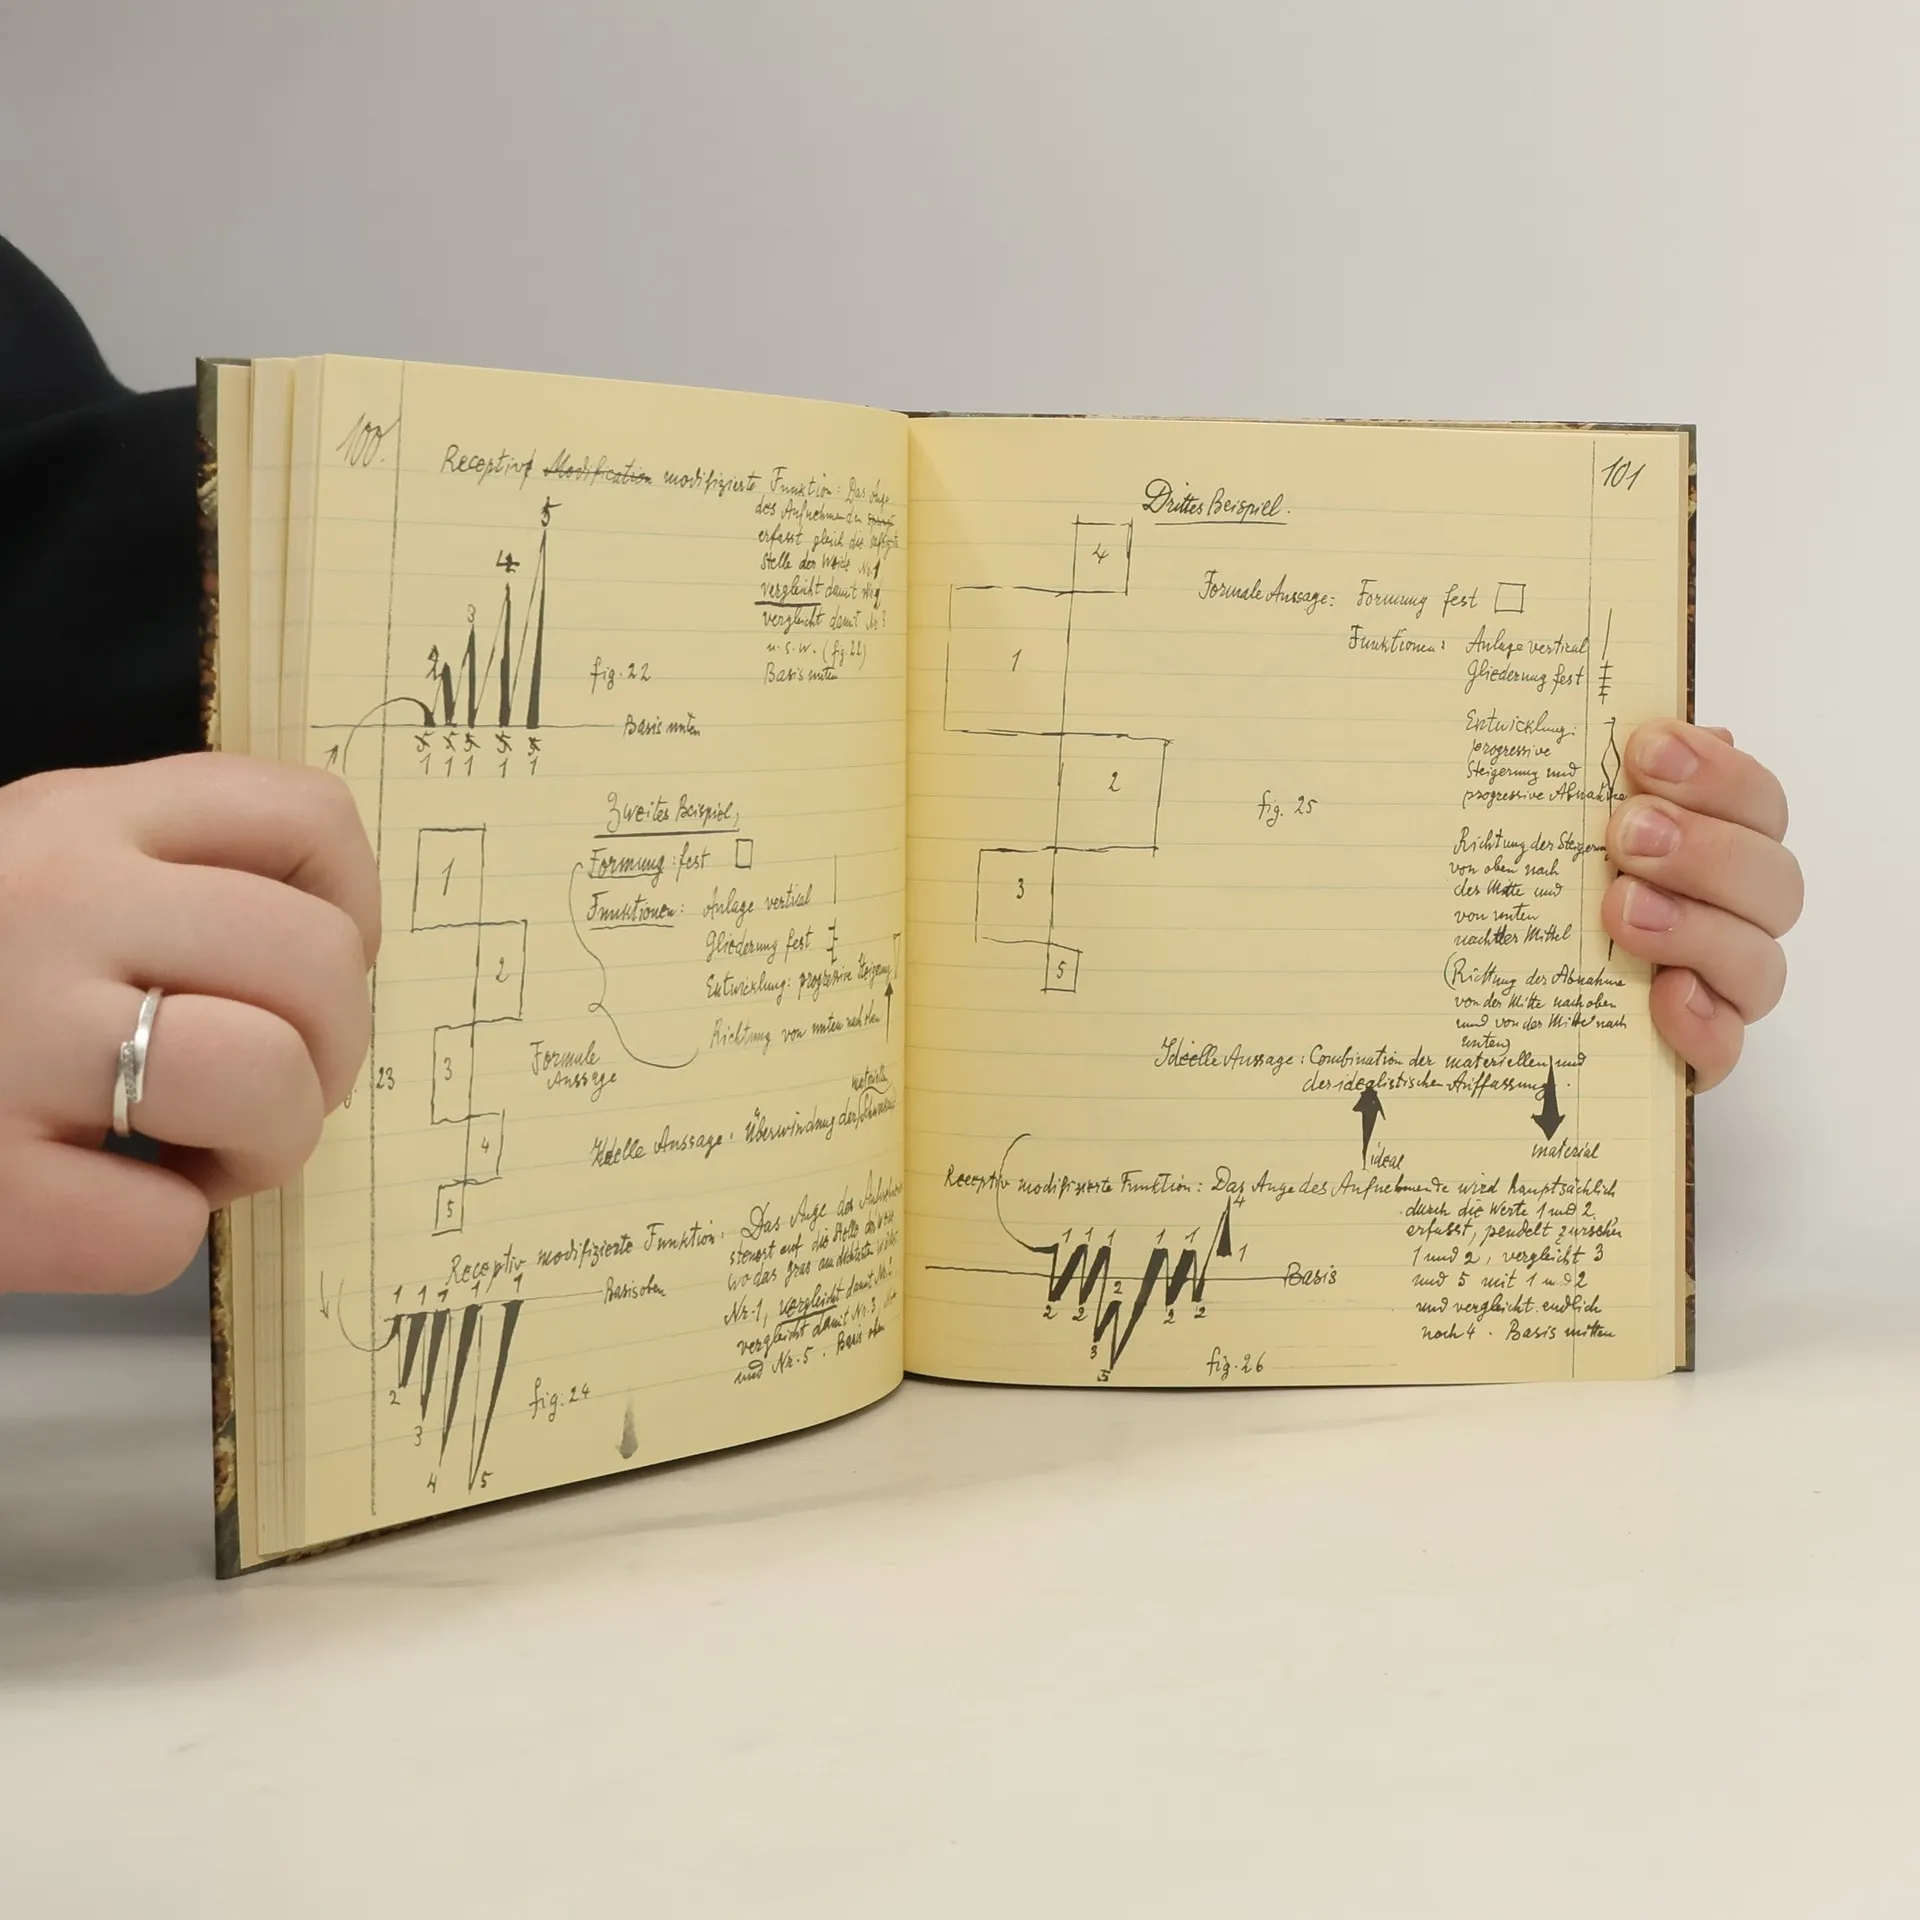 100.
Receptiv Modification modifizierte Funktion: Das Auge
des Aufnehmenden
erfasst gleich die
Stelle der Weide No 1
vergleicht damit
vergleicht damit
u. s. w. (fig. 22)
Basis unten
5
4
3
2
fig. 22
Basis unten
5 5 5 5 5
1 1 1 1 1
Zweites Beispiel,
Formung: fest
Funktionen: Anlage vertical
Gliederung fest
Entwicklung: progressive Steigerung
Richtung von unten nach oben
1
2
3
4
5
23
Formale
Aussage
materiellen
Ideelle Aussage. Überwindung der
Receptiv modifizierte Funktion: Das Auge des
steuert auf die Stelle der
wo das Gras am dichtesten
Nr. 1, vergleicht damit Nr.
vergleicht damit Nr. 3,
und Nr. 5. Basis oben
1 1 1 1 1
Basis oben
2
3
4
5
fig. 24
101
Drittes Beispiel.
4
1
2
3
5
Formale Aussage: Formung fest
Funktionen: Anlage vertical
Gliederung fest
Entwicklung:
progressive
Steigerung und
progressive Abnahme
fig. 25
Richtung der Steigerung
von oben nach
der Mitte und
von unten
nach der Mittel
(Richtung der Abnahme
von der Mitte nach oben
und von der Mitte nach
unten)
Ideelle Aussage: Combination der materiellen und
der idealistischen Auffassung.
ideal
material
Receptiv modifizierte Funktion: Das Auge des Aufnehmende wird hauptsächlich
durch die Werte 1 und 2
erfasst, pendelt zwischen
1 und 2, vergleicht 3
und 5 mit 1 und 2
und vergleicht endlich
noch 4. Basis mitten
4
1 1 1 1 1 1
Basis
2 2 2 2 2
3
5
fig. 26